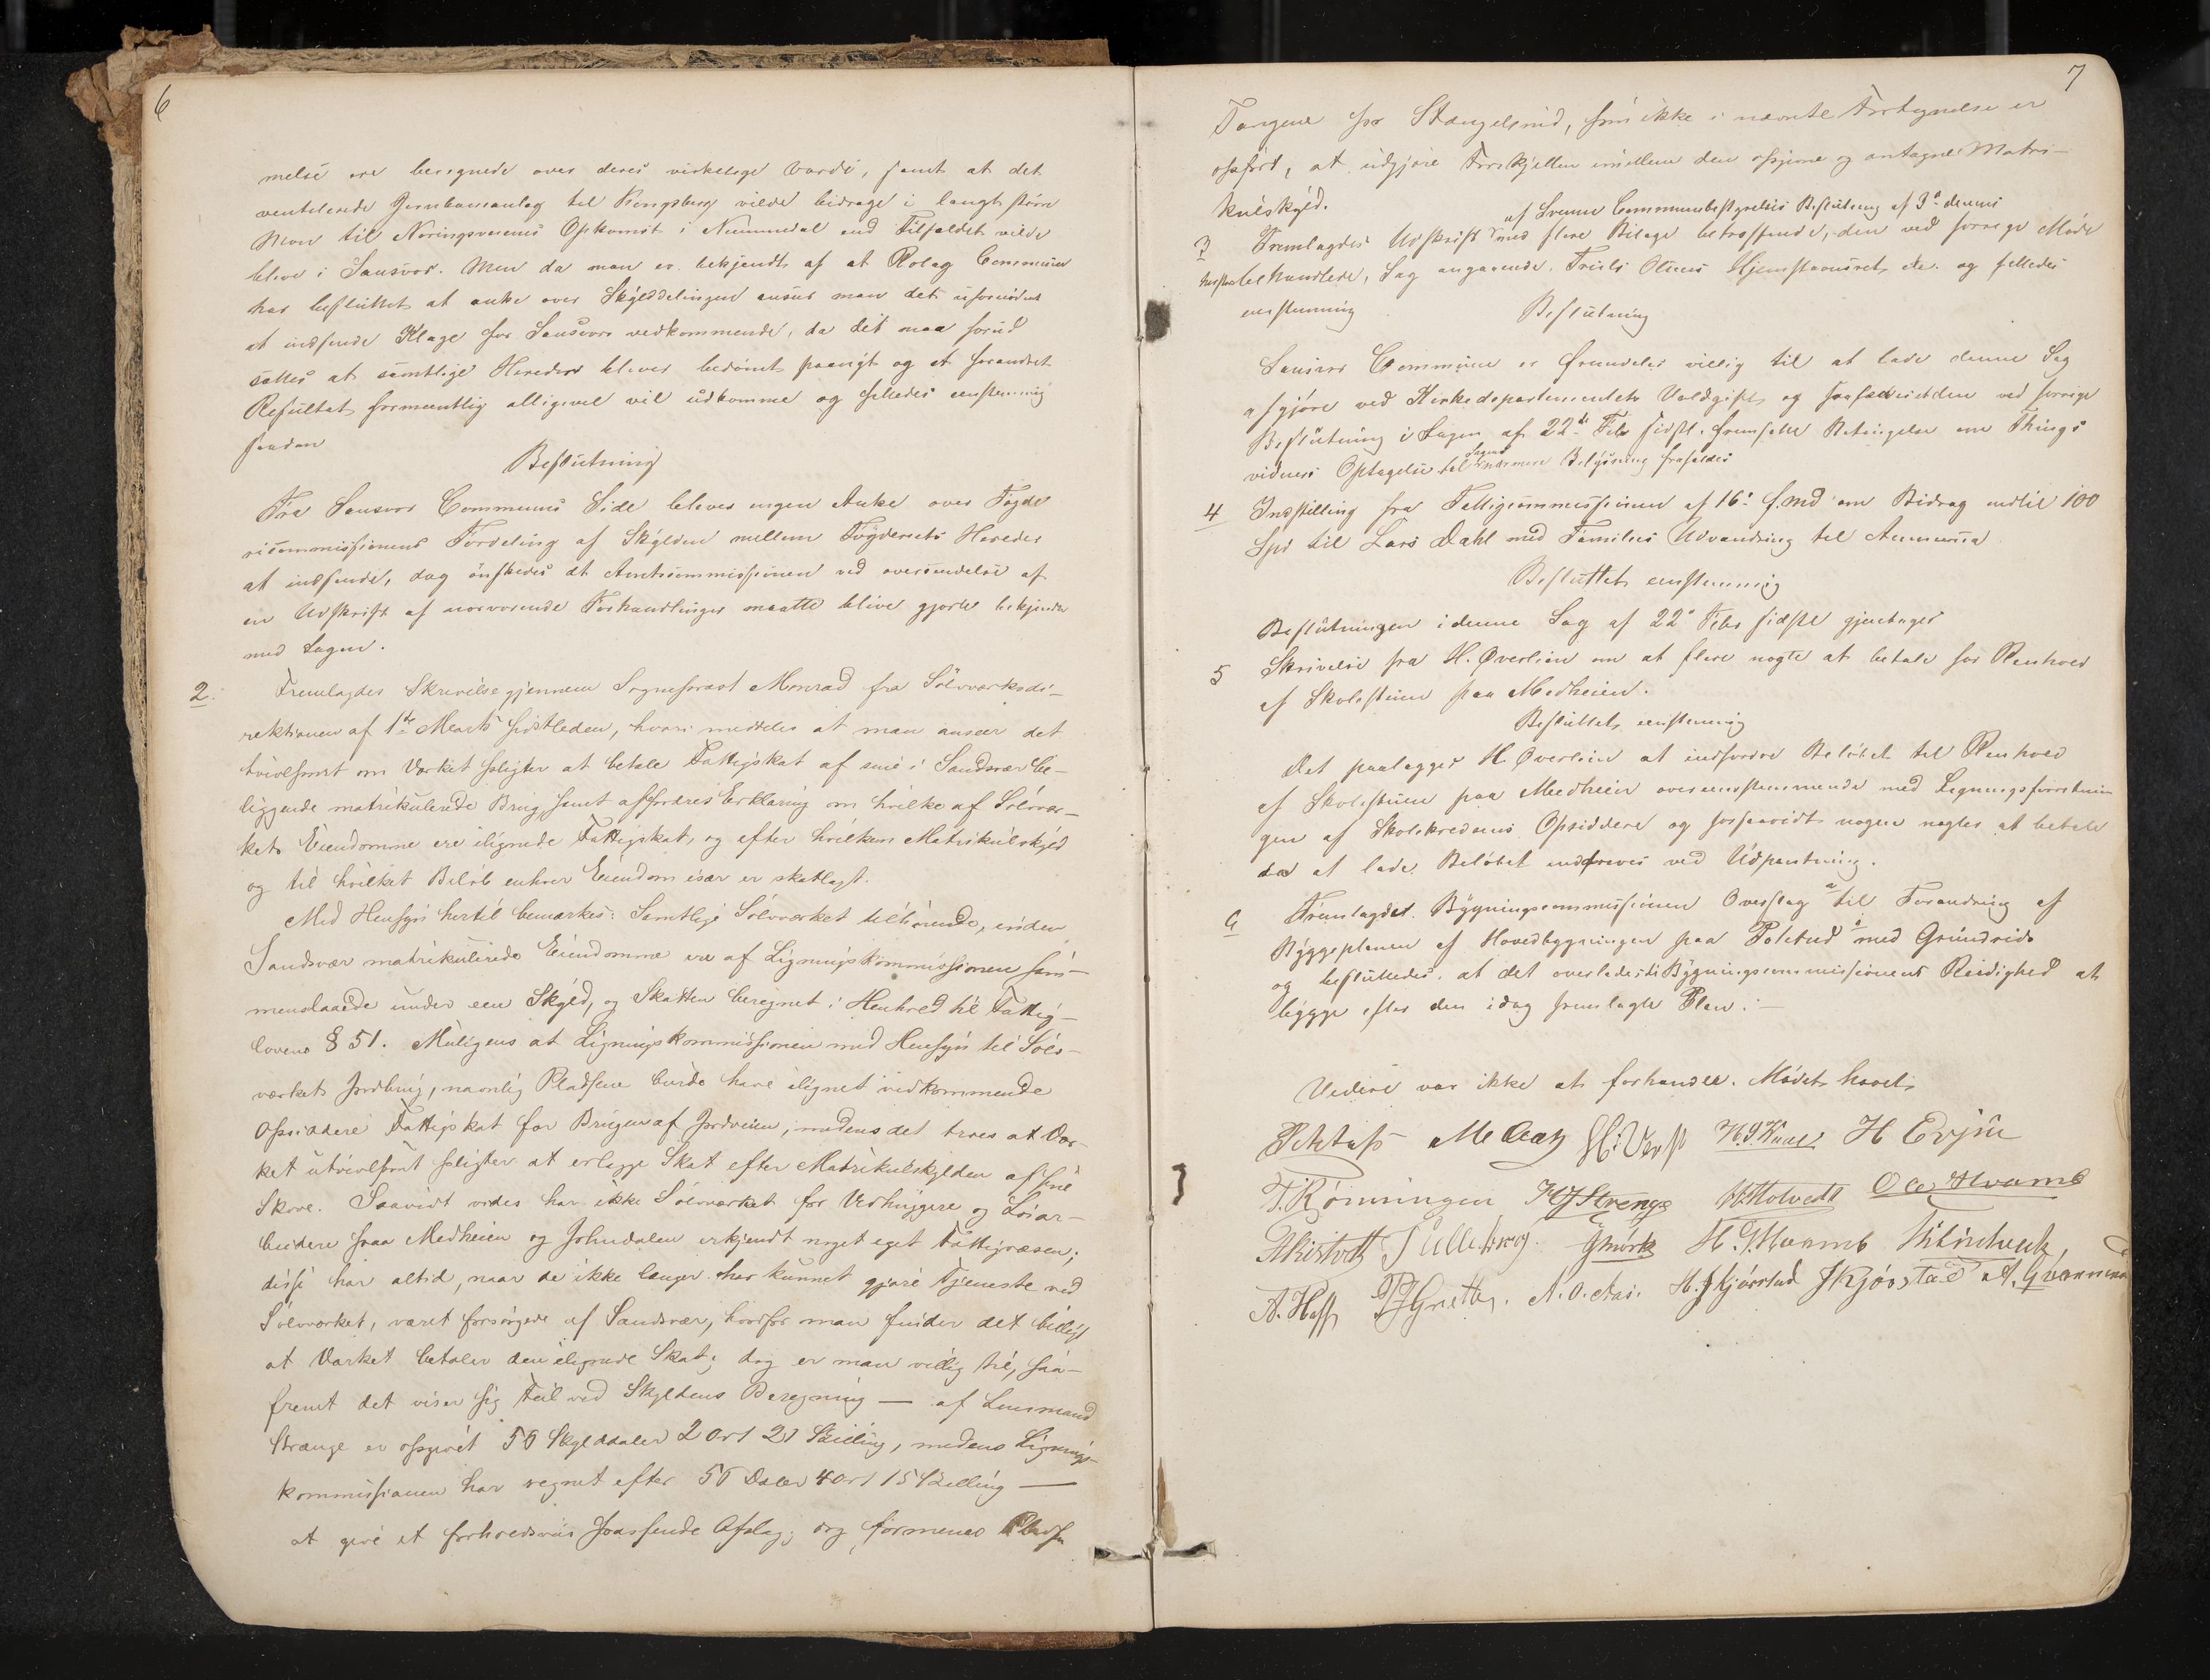 6
melse ere beregnede over deres virkelige Værdi, samt at det
ventilerede Jernbaneanlæg til Kongsberg vilde bidrage i langt større
Mon til Næringsveienes Opkomst i Nummedal end Tilfældet vilde
blive i Sansvær. Men da man er bekjendt af at Rolag Commune
har besluttet at anke over Skylddelingen ansees man det ufornødent
at indsende Klage for Sansværs vedkommende, da det maa forud
sættes at samtlige Hereder bliver bedømt paanyt og et forandret
Resultat formeentlig alligevel vil udkomme og fattedes eenstemmig
saadan
Beslutning
Fra Sansvær Communes Side bliver ingen Anke over Fogde
ricommissionens Fordeling af Skylden mellem Fogderiets Hereder
at indsende, dog ønskedes at Amtscommissionen ved oversendelse af
en Udskrift af nærværende Forhandlinger maatte blive gjorte bekjendte
med Sagen.
2. Fremlagdes Skrivelse gjennem Sogneforast Monrad fra Sölvværksdi-
rektionen af 1ste Marts sidstleden, hvori meddeles at man anseer det
tvivlsomt om Værket pligter at betale Fattigskat af sine i Sandsvær be-
liggende matrikulerede Brug samt affordres Erklæring om hvilke af Sölvvær-
kets Eiendomme ere ilignede Fattigskat, og efter hvilken Matrikulskyld
og til hvilket Beløb enhver Eiendom især er skatlagt.
Med Hensyn hertil bemærkes: Samtlige Sölvværket tilhörende, inden
Sandsvær matrikulerede Eiendomme ere af Ligningskommissionen sam-
menslaaede under een Skyld, og Skatten beregnet i Henhold til Fattig-
lovens § 51. Muligens at Ligningskommissionen med Hensyn til Sölv-
værkets Jordbrug, navnlig Pladsene burde have ilignet vedkommende
Opsiddere Fattigskat for Brugen af Jordveien, medens det troes at Vær-
ket utvivlsomt pligter at erlægge Skat efter Matrikulskylden af sine
Skove. Saavidt vides har ikke Sölvværket for Vedhuggere og Löiar-
beidere paa Medheien og Johndalen erkjendt noget eget Fattigvæsen;
disse har altid, naar de ikke længer har kunnet gjøre Tjeneste ved
Sölvværket, været forsörgede af Sandsvær, hvorfor man finder det billigt
at Værket betaler den ilignede Skat; dog er man villig til, saa-
fremt det viser sig Feil ved Skyldens Beregning — af Lensmand
Strænge er opgivet 56 Skylddaler 2 Ort 21 Skilling, medens Lignings-
kommissionen har regnet efter 56 Daler 4 Ort 15 Skilling —
at give et forholdsviis passende Afslag; dog formenes Plads
7
Tangene for Stængelsrud, som ikke i nævnte Fortegnelse er
opført, at udgjøre Forskjellen imellem den opgivne og antagne Matri-
kulskyld.
af Svenne Communebestyrelses Beslutning af 3de dennes
3 Fremlagdes Udskrift med flere Bilage betræffende, den ved forrige Møde
behandlede, Sag angaaende Truls Olsens Hjemstavnsret, etc. og fattedes
eenstemmig
Beslutning
Sansvær Commune er fremdeles villig til at lade denne Sag
afgjøre ved Kirkedepartementets Voldgift, og frafaldes den ved forrige
Beslutning i Sagen af 22de Feb sidstl. fremsatte Betingelse om Things
vidners Optagelse til Sagens nærmere Belysning frafaldes
4 Indstilling fra Fattigcommissionen af 16. f. Md om Bidrag indtil 100
Spd til Lars Dahl med Families Udvandring til Amerika
Besluttet eenstemmig
Beslutningen i denne Sag af 22de Febr sidstl gjentages
5 Skrivelse fra H. Øverlien om at flere negte at betale for Renhold
af Skolestuen paa Medheien.
Besluttet, eenstemmig
Det paalægges H. Øverlien at indfordre Beløbet til Renhold
af Skolestuen paa Medheien overeensstemmende med Ligningsforretnin
gen af Skolekredsens Opsiddere og forsaavidt nogen negter at betale
da at lade Beløbet inddrives ved Udpantning.
6 Fremlagdes Bygningscommissionen Overslag a til Forandring af
Byggeplanen af Hovedbygningen paa Poletud b med Grundrids
og besluttedes at det overlades til Bygningscommissionens Raadighed at
bygge efter den idag fremlagte Plan.—
Videre var ikke at forhandle. Mødet hævet
H Evju
T. Rønningen H J Strenge H Holvedt O. C. Hvamb
Tulleberg. H. T. Hvamb
A. Hoff A. O. Aas. H. J Kjørstad J Kjørstad A. Granmem